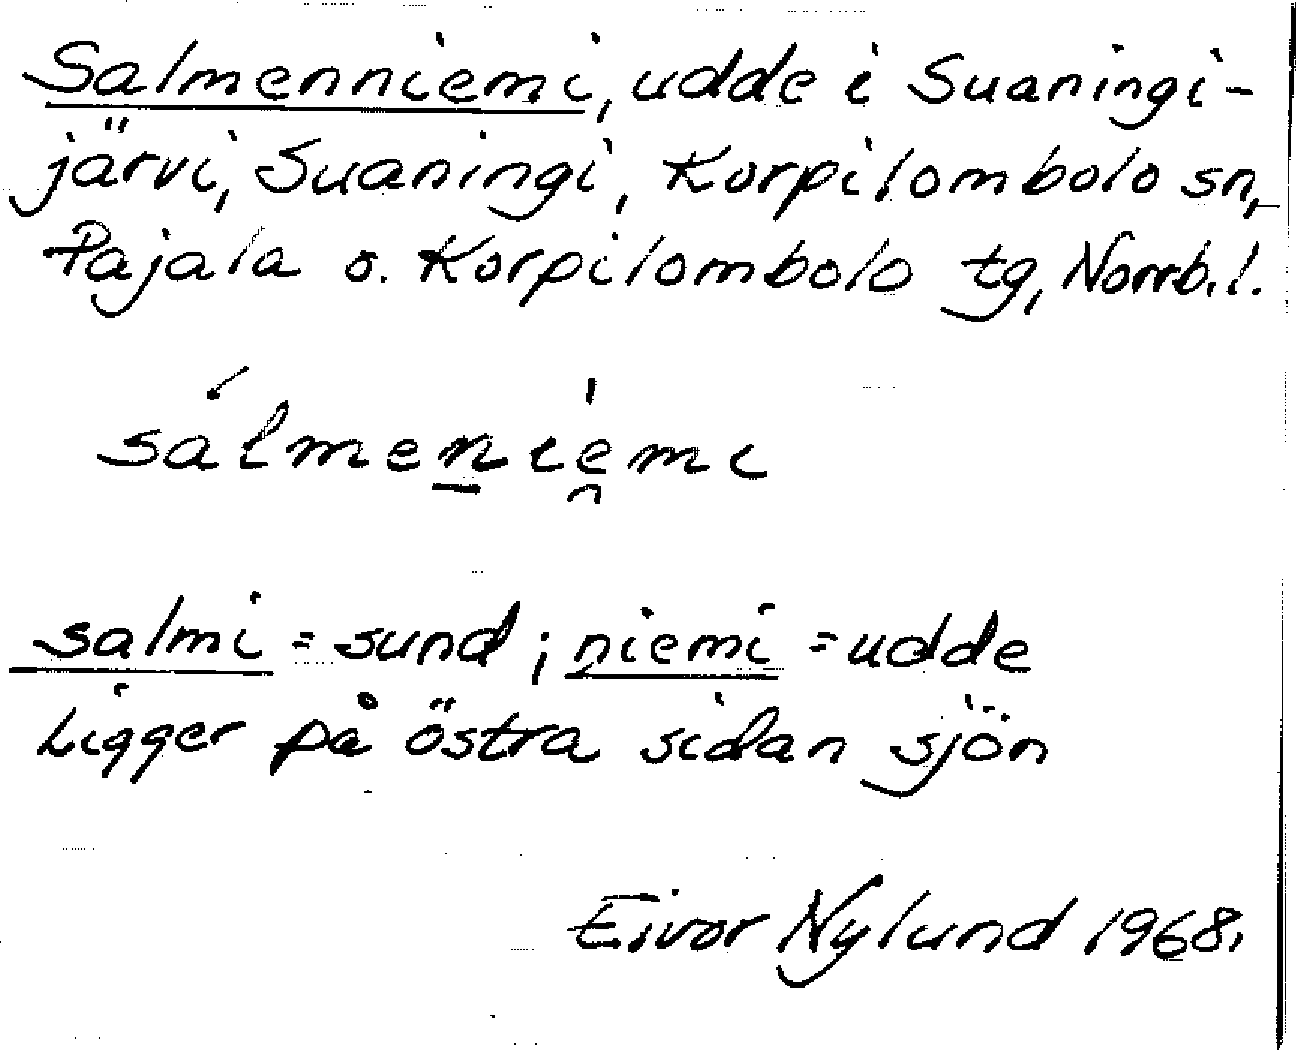 Salmenniemi, udde i Suaningi-
järvi, Suaningi, Korpilombolo sn,
Pajala o. Korpilombolo tg, Norrb.l.
sálmenièmi
salmi = sund ; niemi = udde
Ligger på östra sidan sjön
Eivor Nylund 1968.